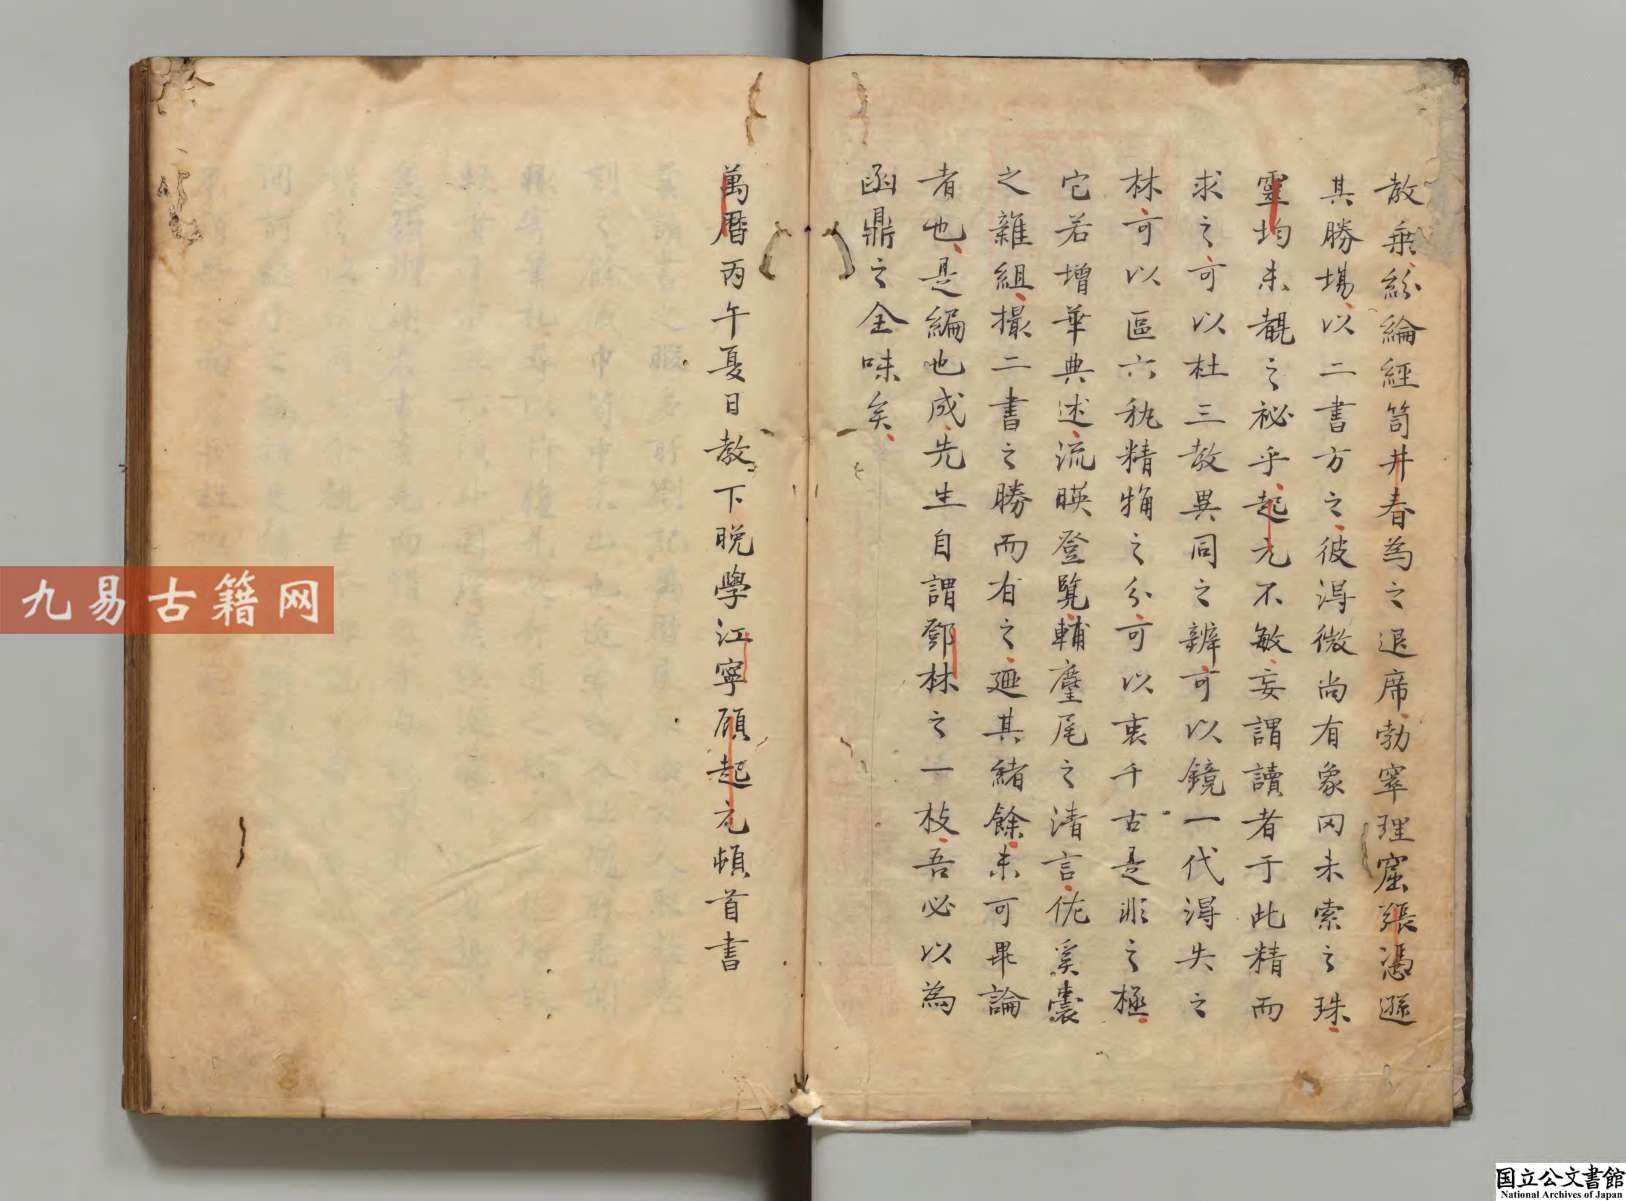 教乘紛綸經笥井春為之退席勃窣理窟張憑遜
其勝場以二書方之彼得微尚有象罔未索之珠
靈均未覩之祕乎起元不敏妄謂讀者于此精而
求之可以杜三教異同之辨可以鏡一代得失之
林可以區六秇精觕之分可以衷千古是非之極
它若增華典述流暎登覽輔麈尾之清言佐奚囊
之雜組撮二書之勝而有之廼其緒餘未可畢論
者也是編也成先生自謂鄧林之一枝吾必以為
函鼎之全味矣
萬曆丙午夏日教下晚學江寧顧起元頓首書
九易古籍网
国立公文書館
National Archives of Japan